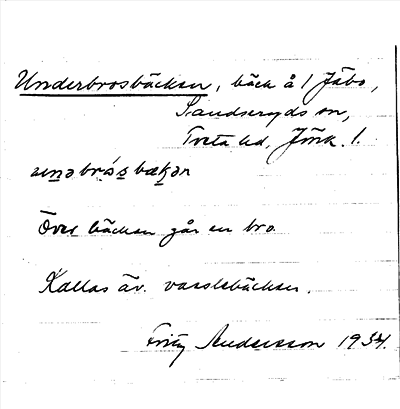 Underbrosbäcken, bäck å 1 Jäbo,
Sandseryds sn,
Tveta hd, Jönk. l.
Över bäcken går en bro.
Kallas äv. vasslebäcken.
Fritz Andersson 1934.